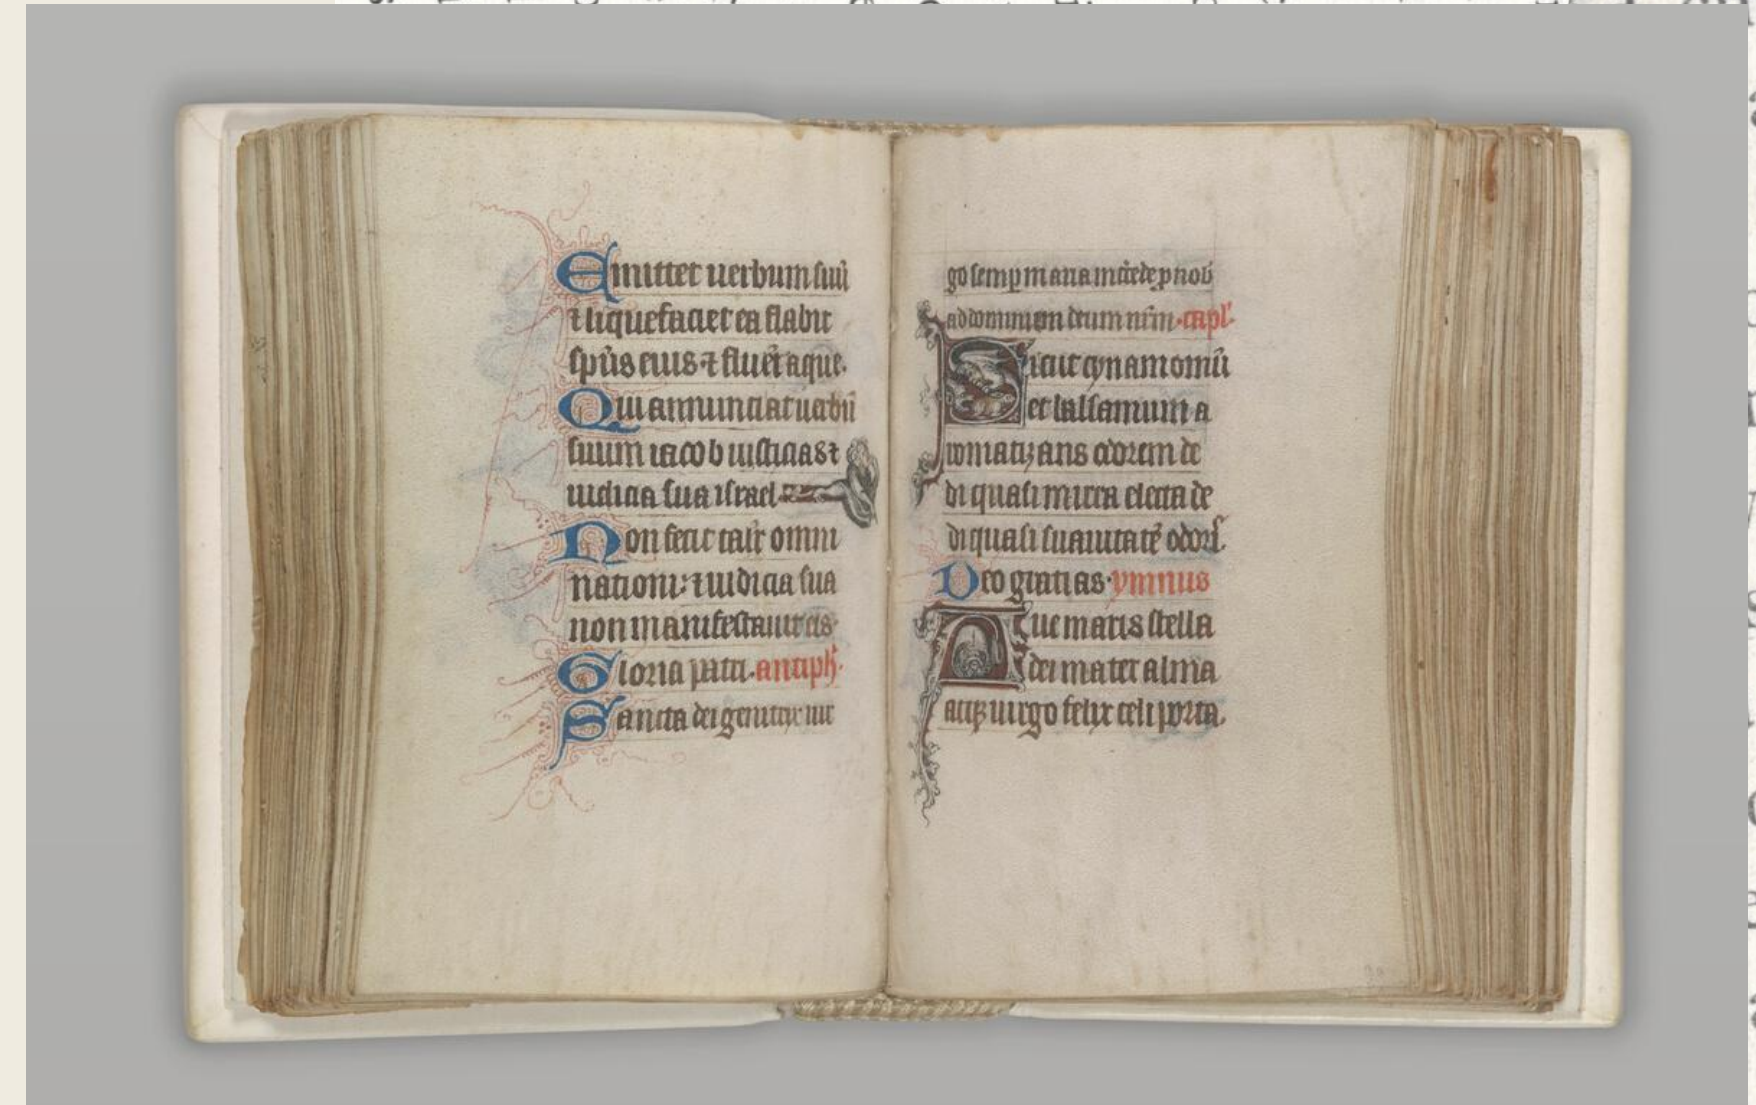 Emittet uerbum suū
⁊ liquefaciet ea flabit
sp̄us eius ⁊ fluēt aque.
Qui annunciat uerbū
suum iacob iusticias ⁊
iudicia sua israel
Non fecit talr̄ omni
nationi: ⁊ iudicia sua
non manifestauit eis.
Gloria patri. antiph̄.
Sancta dei genitrix uir
go semp̄ maria int̄cede p̄ nob̄
ad dominum deum nr̄m. capl̄'.
Sicut cynamomū
et balsamum a
romatizans odorem de
di quasi mirra electa de
di quasi suauitatē odoris.
Deo gratias. ymnus
Aue maris stella
dei mater alma
atqꝫ uirgo felix celi porta.